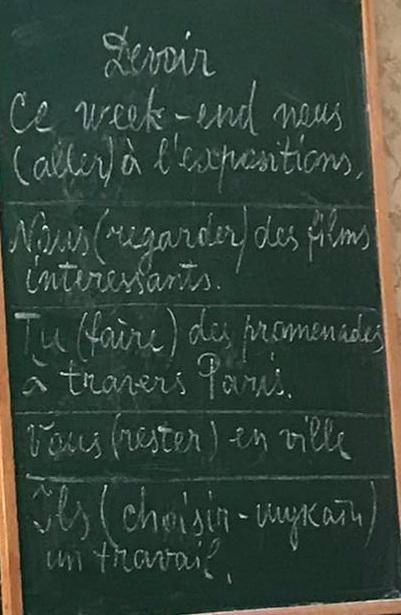 Devoir
Ce week-end nous
(aller) à l'expositions.
Nous (regarder) des films
interessants.
Tu (faire) des promenades
à travers Paris.
Vous (rester) en ville
Ils (choisir - шукати)
un travail.